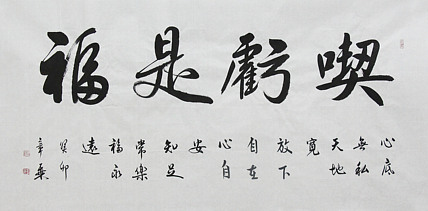 喫虧是福
心底
無私
天地
寬
放下
自在
心自
安
知足
常樂
福永
遠
癸卯